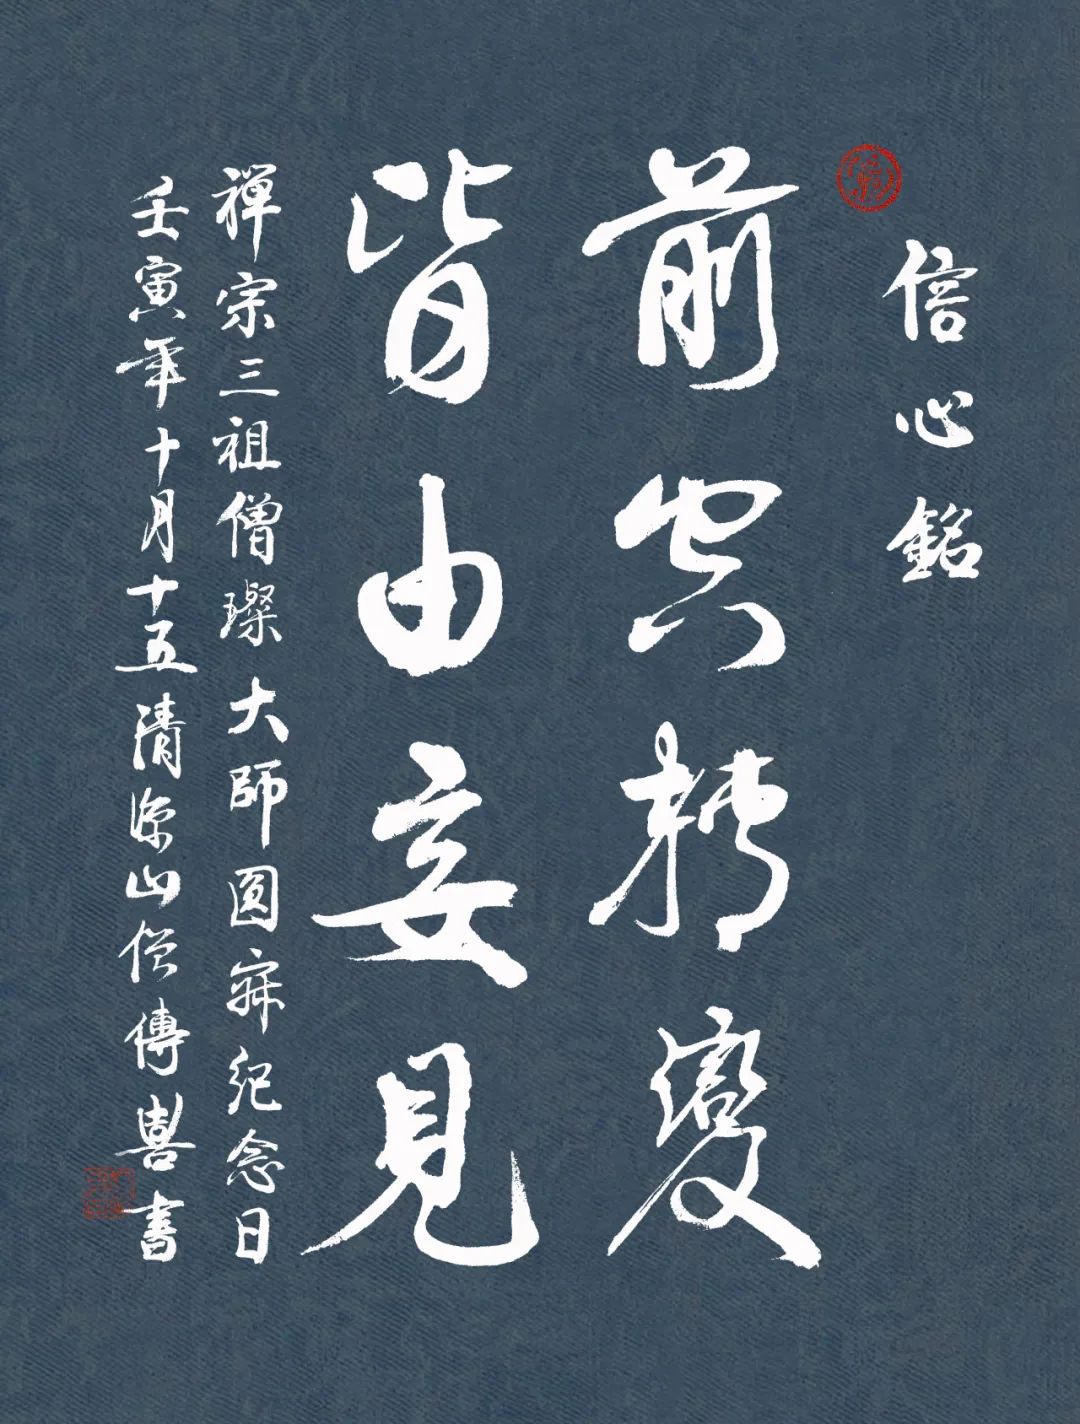 信心銘
前空轉變
皆由妄見
禅宗三祖僧璨大師圓寂纪念日
壬寅年十月十五清源山僧傳喜書